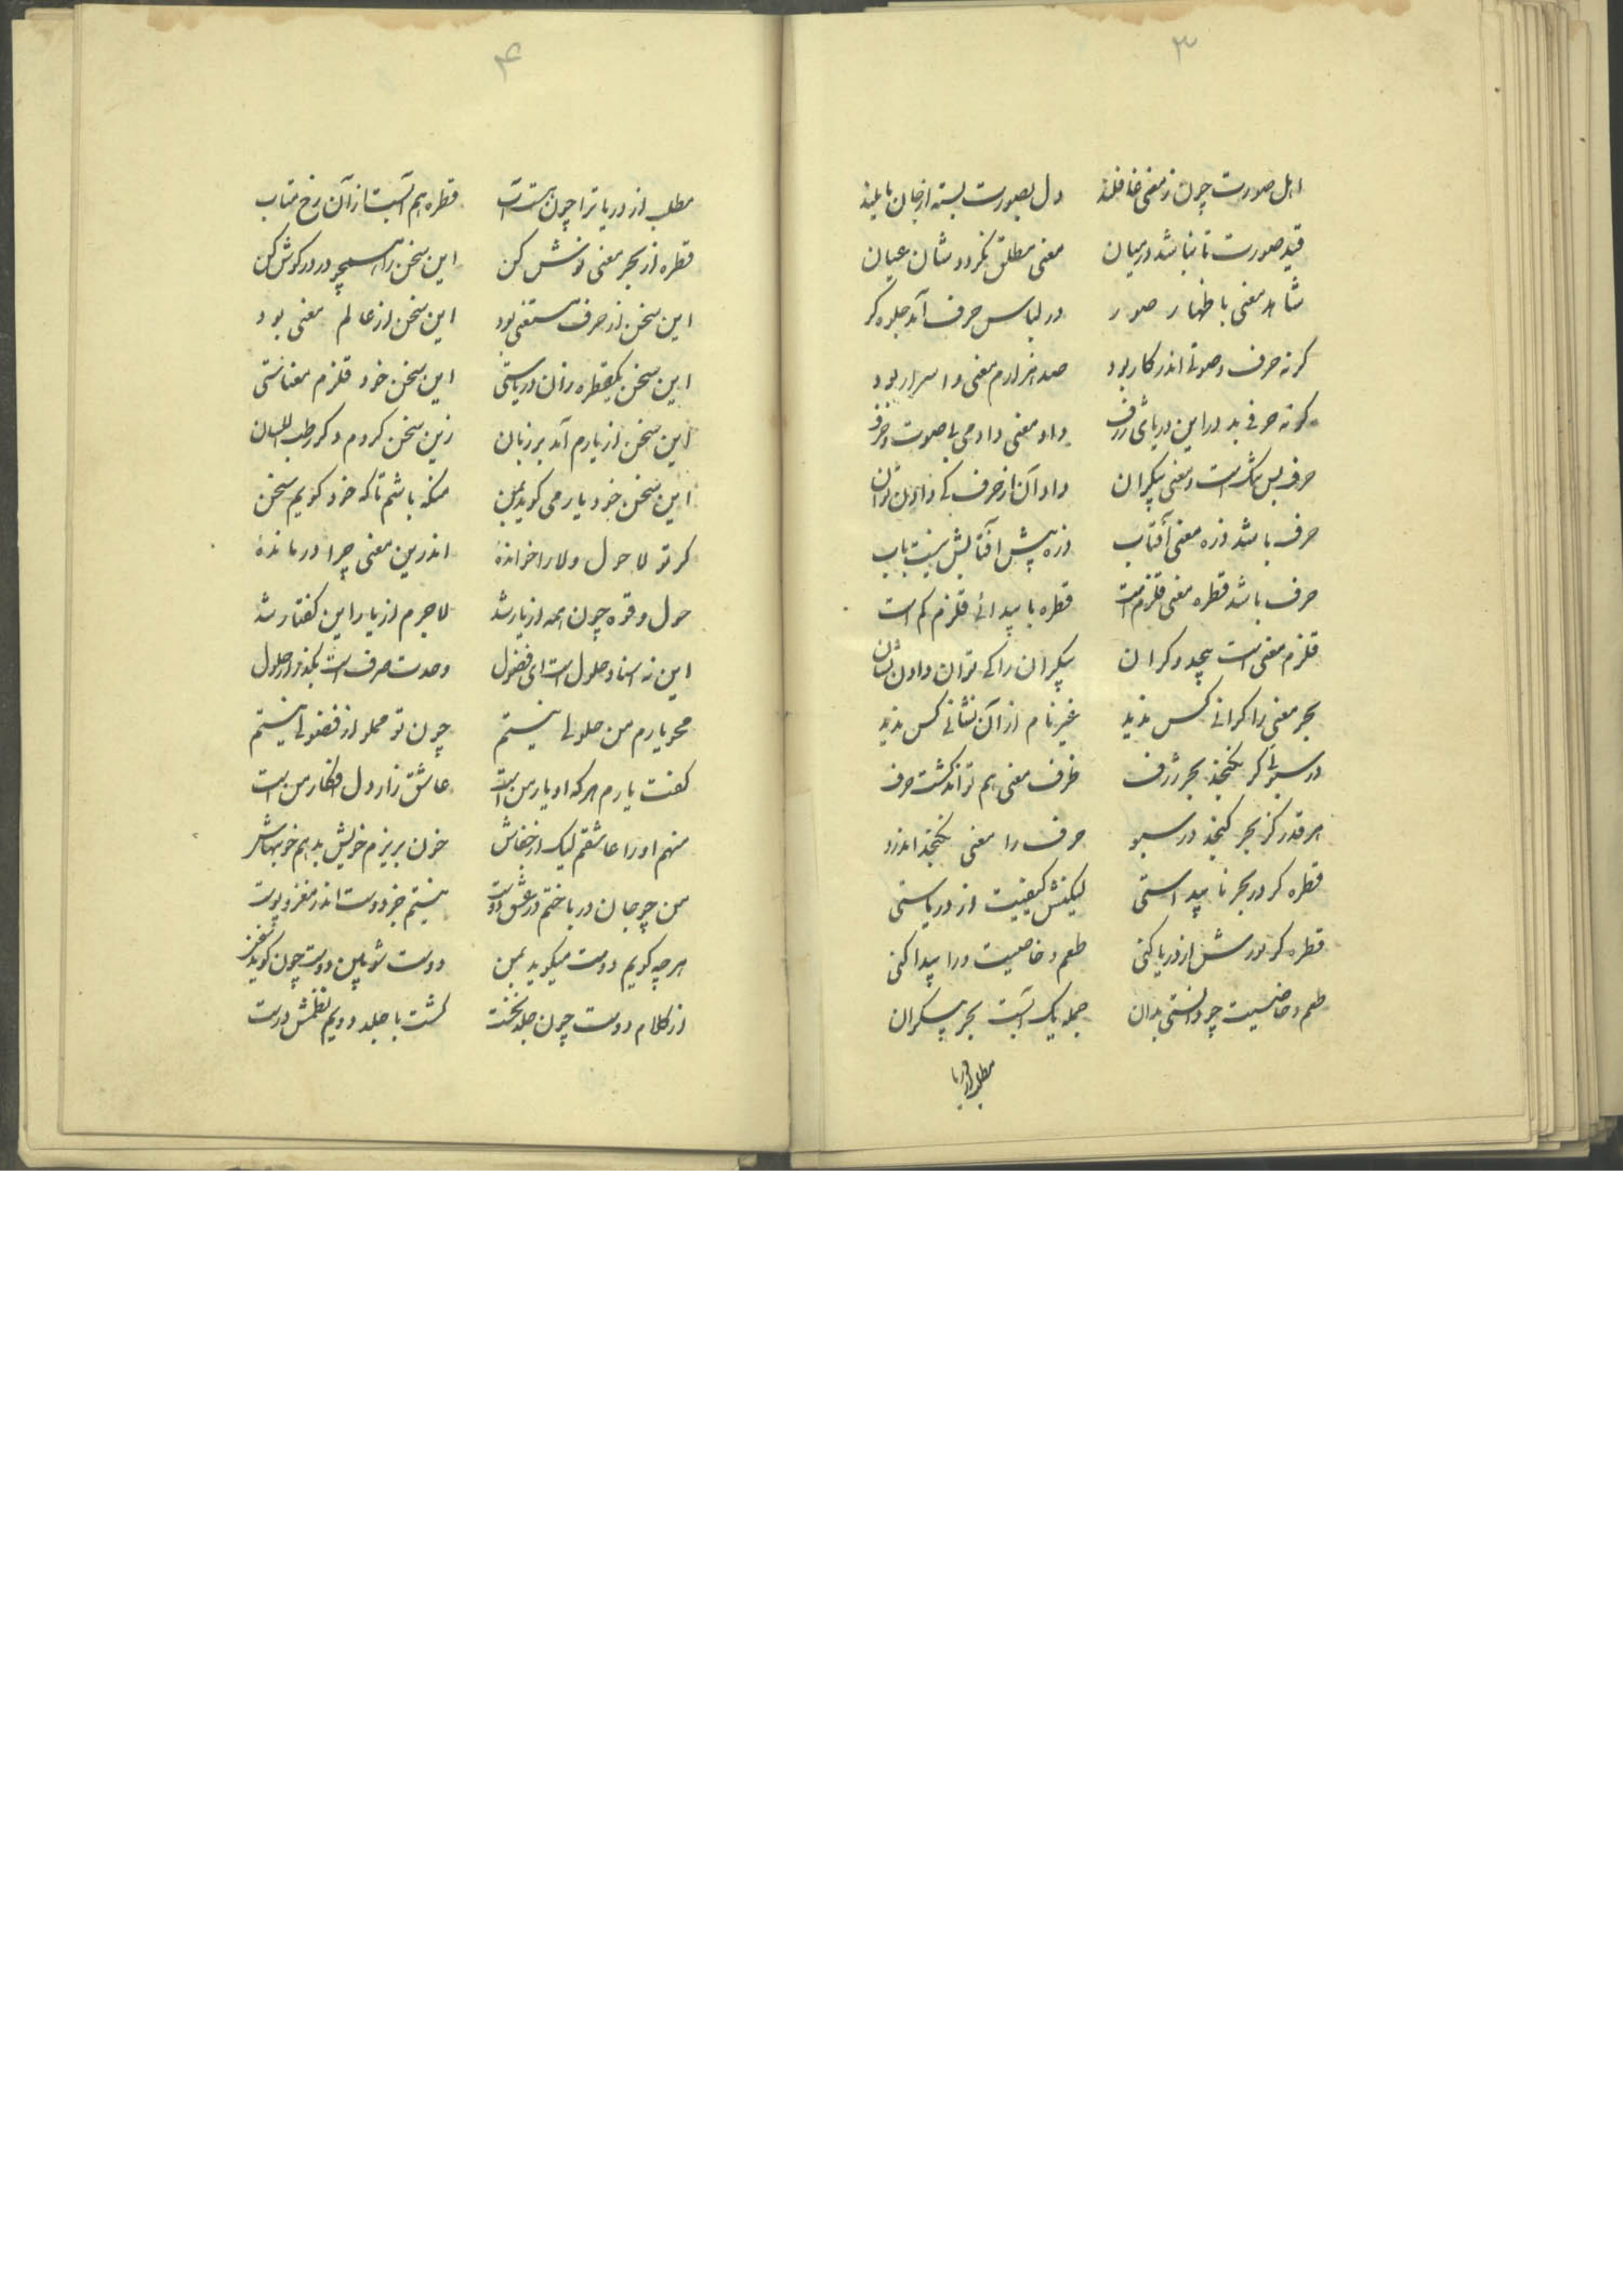 ۳
اهل صورت چون ز معنی غافلند دل بصورت بسته از جان مایلند
قید صورت تا نباشد در میان معنی مطلق نکردد شان عیان
شاهد معنی باظهار صور در لباس حرف آمد جلوه کر
کر نه حرف و صوتی اندر کار بود صد هزارم معنی و اسرار بود
کر نه حرفی بد در این دریای ژرف داد معنی دادمی بی صوت و حرف
حرف بس تنک است و معنی بیکران داد آن از حرف کی دادن توان
حرف باشد ذره معنی آفتاب ذره پیش آفتابش نیست تاب
حرف باشد قطره معنی قلزم است قطره با پیدائی قلزم کم است
قلزم معنی است بیحد و کران بیکران را کی توان دادن نشان
بحر معنی را کرانی کس ندید غیر نام از آن نشانی کس ندید
در سبوئی کر نکنجد بحر ژرف ظرف معنی هم نتواند کشت حرف
هر قدر کز بحر کنجد در سبو حرف را معنی نکنجد اندرو
قطره کر در بحر ناپیداستی لیکنش کیفیت از دریاستی
قطره کر نورش از دریا کنی طعم و خاصیت ورا پیدا کنی
طعم و خاصیت چو دانستی بدان جمله یک آبست بحر بیکران
مطلب از دریا
۴
مطلب از دریا ترا چون هست آب قطره هم آبست از آن رخ متاب
قطره از بحر معنی نوش کن این سخن را همچو در در کوش کن
این سخن از حرف مستغنی بود این سخن از عالم معنی بود
این سخن یکقطره زان دریاستی این سخن خود قلزم معناستی
این سخن از یارم آمد بر زبان زین سخن کردم دکر رطب اللسان
این سخن خود یار می کوید بمن منکه باشم تا که خود کویم سخن
کر تو لا حول و لا را خواندهٔ اندرین معنی چرا درماندهٔ
حول و قوه چون همه از یار شد لاجرم از یار این کفتار شد
این نه اسناد حلول است ای فضول وحدت صرف است بکذر از حلول
محو یارم من حلولی نیستم چون تو مملو از فضولی نیستم
کفت یارم هر که او یار من است عاشق زار دل افکار من است
منهم او را عاشقم لیک از خفاش خون بریزم خویش بدهم خونبهاش
من چو جان درباختم در عشق دوست نیستم جز دوست اندر مغز و پوست
هر چه کویم دوست میکوید بمن دوست شو ببین دوست چون کوید سخن
از کلام دوست چون جلد نخست کشت با جلد دویم نظمش درست